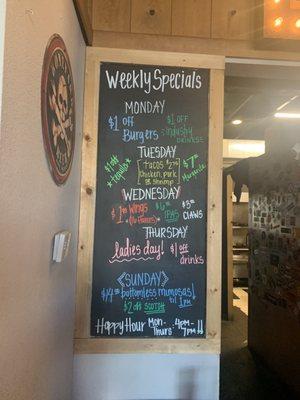 Weekly Specials
MONDAY
$1 off Burgers
$1 off Industry DRINKS
TUESDAY
$1 off *tequila*
Tacos $2.00
Chicken, pork, or Shrimp
$7 Margarita
WEDNESDAY
$1 WINGS
$6 IPAS
$5 CLAWS
THURSDAY
ladies day!
$1 off drinks
SUNDAY
$14 bottomless mimosas!
'til 1PM
$2 off SCOTCH
Happy Hour Mon-Thurs: 4PM-7PM!!